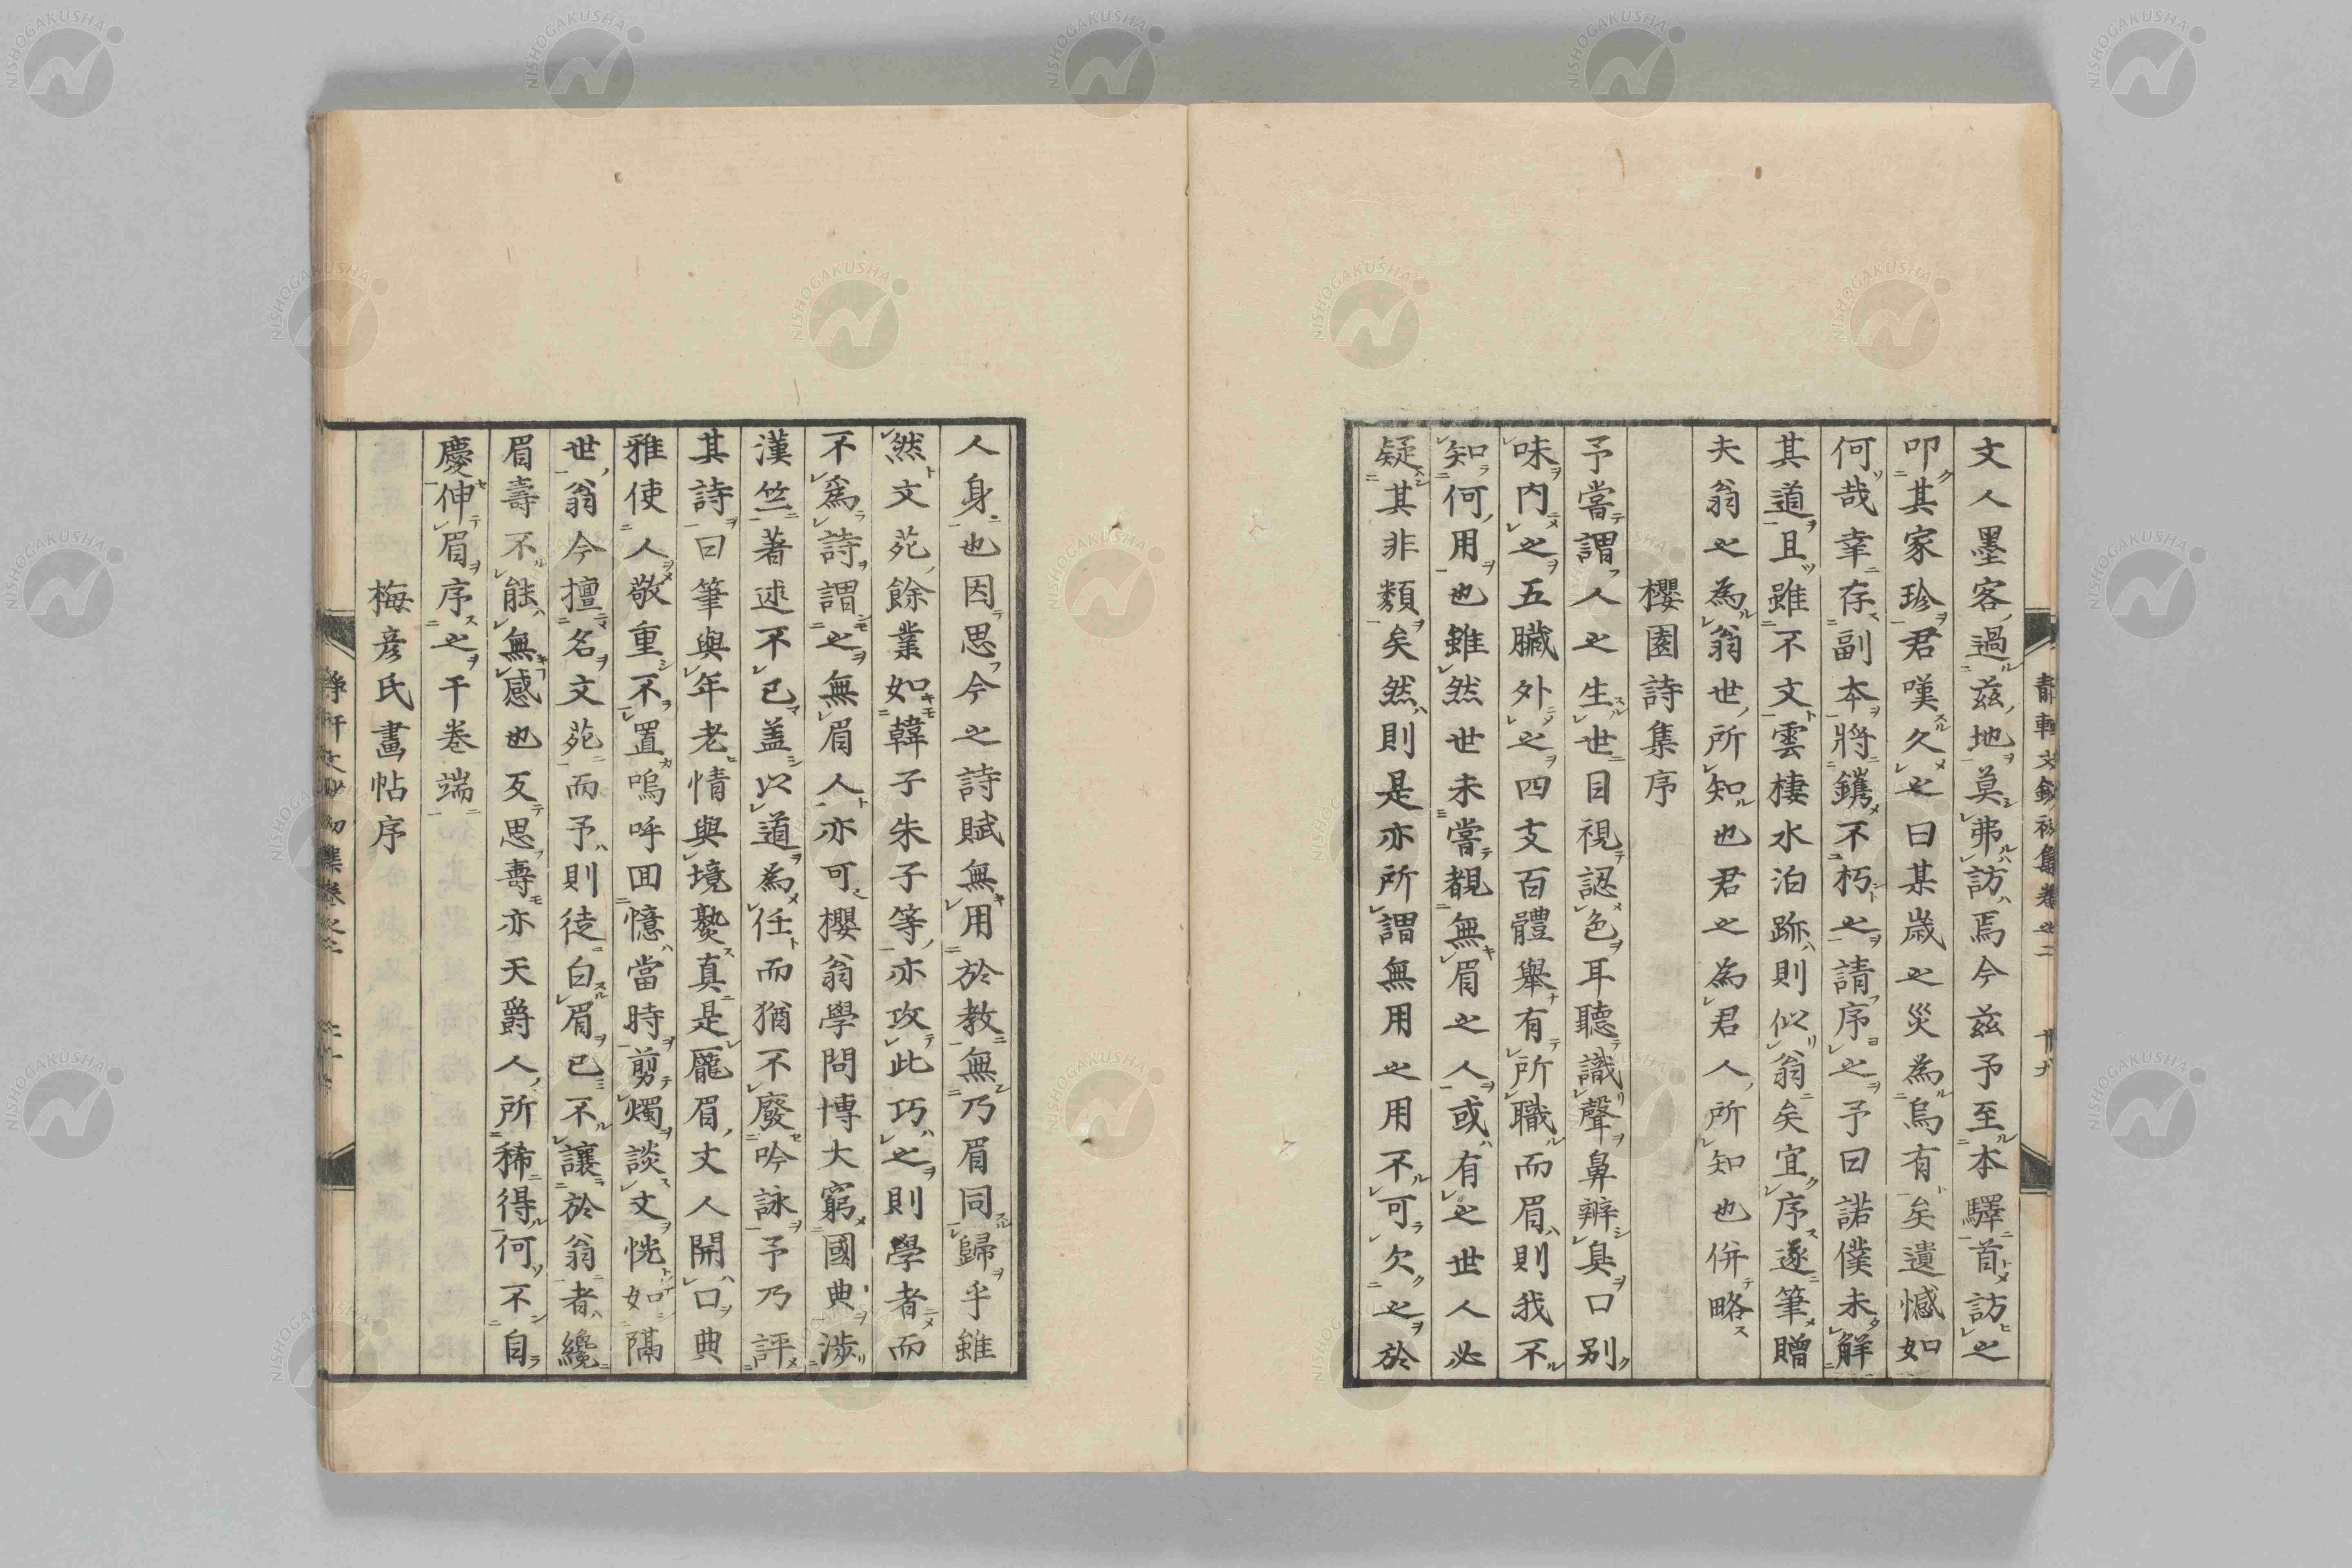 文人墨客過茲地莫弗訪焉今茲予至本驛首訪之
叩其家珍君嘆久之曰某歲之災為烏有矣遺憾如
何哉幸存副本將鐫不朽之請序之予曰諾僕未解
其道且雖不文雲棲水泊跡則似翁矣宜序遂筆贈
夫翁之為翁世所知也君之為君人所知也併略
櫻園詩集序
予嘗謂人之生世目視認色耳聽識聲鼻辨臭口別
味內之五臟外之四支百體舉有所職而眉則我不
知何用也雖然世未嘗覩無眉之人或有之世人必
疑其非類矣然則是亦所謂無用之用不可欠之於
人身也因思今之詩賦無用於教無乃眉同歸乎雖
然文苑餘業如韓子朱子等亦攻此巧之則學者而
不為詩謂之無眉人亦可櫻翁學問博大窮國典涉
漢竺著述不已蓋以道為任而猶不廢吟詠予乃評
其詩曰筆與年老情與境熟真是龐眉丈人開口典
雅使人敬重不置嗚呼回憶當時剪燭談文恍如隔
世翁今擅名文苑而予則徒白眉已不讓於翁者纔
眉壽不能無感也反思壽亦天爵人所稀得何不自
慶伸眉序之干卷端
梅彥氏畫帖序
靜軒文鈔初集卷之二
NISHOGAKUSHA